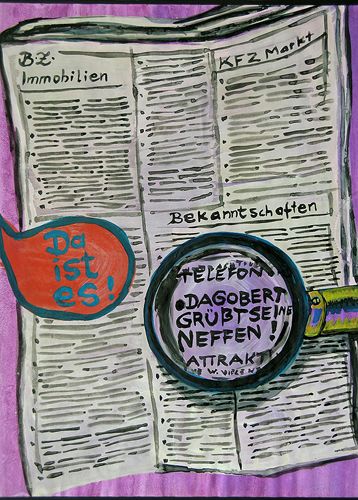 BZ.
Immobilien
KFZ Markt
Bekanntschaften
Da
ist
es!
TELEFON
.DAGOBERT
GRÜßT SEINE
NEFFEN!
ATTRAKT
W.